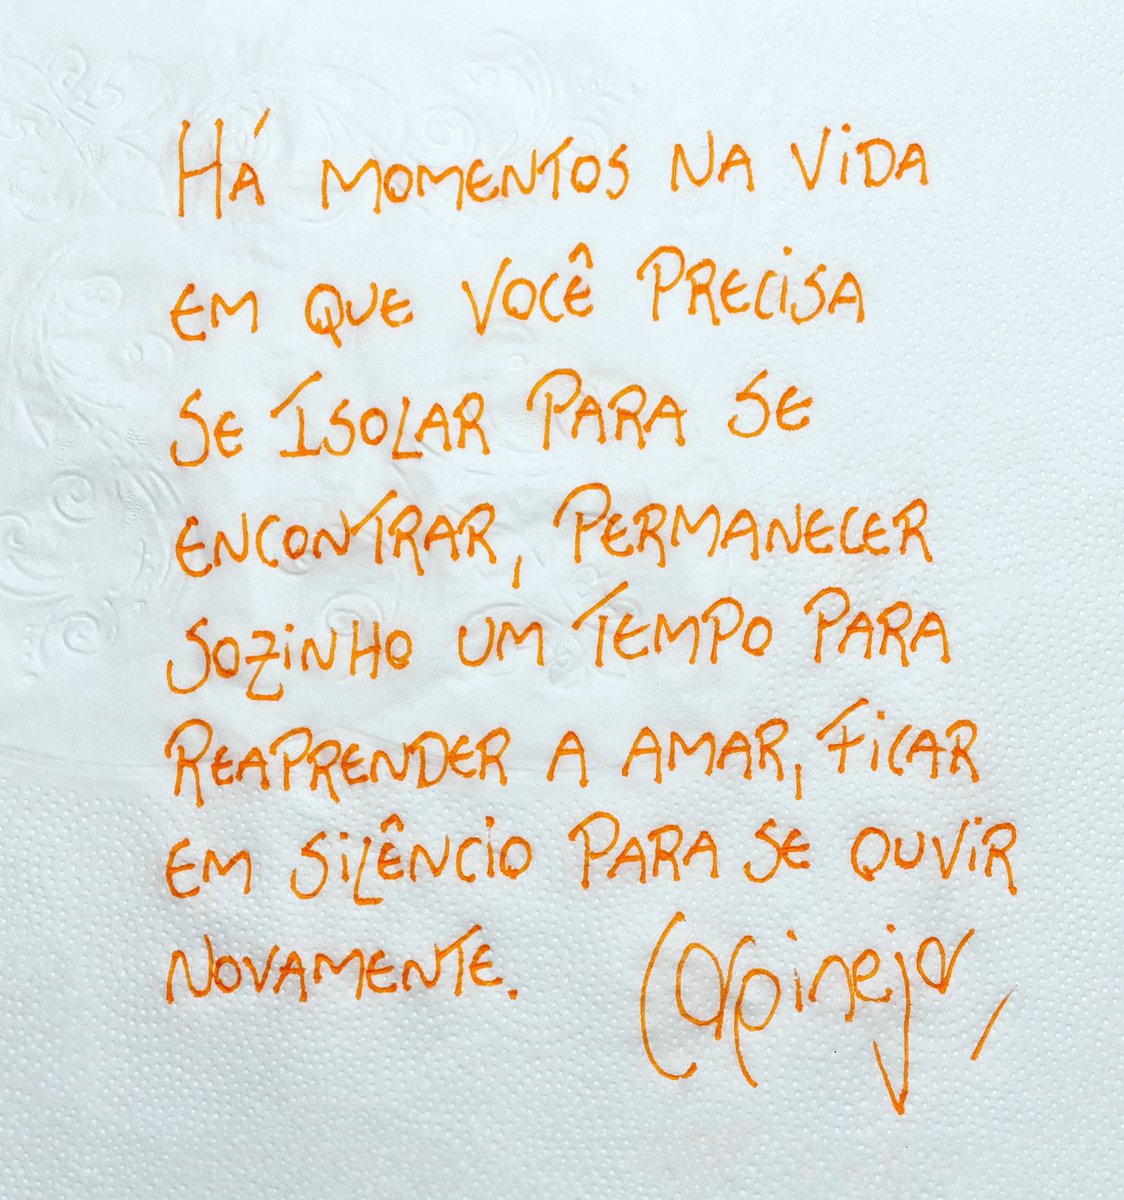 HÁ MOMENTOS NA VIDA
EM QUE VOCÊ PRECISA
SE ISOLAR PARA SE
ENCONTRAR, PERMANECER
SOZINHO UM TEMPO PARA
REAPRENDER A AMAR, FICAR
EM SILÊNCIO PARA SE OUVIR
NOVAMENTE.
Carpinejar